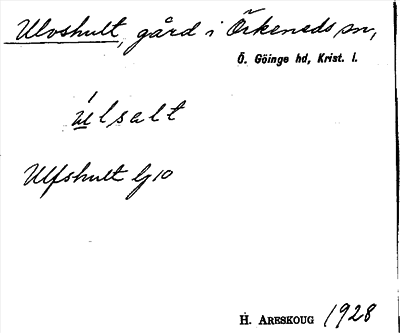 Ulvshult, gård i Örkeneds sn,
Ö. Göinge hd, Krist. l.
úlsalt
Ulfshult Gj 10
H. ARESKOUG 1928